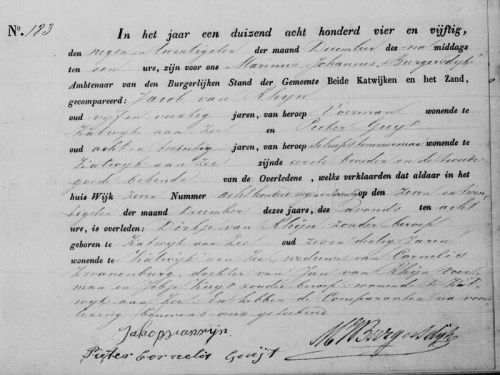 No. 183
In het jaar een duizend acht honderd vier en vijftig,
den negen en twintigsten der maand December des na middags
ten een ure, zijn voor ons Marinus Johannes Burgersdijk
Ambtenaar van den Burgerlijken Stand der Gemeente Beide Katwijken en het Zand,
gecompareerd: Jacob van Rhijn
oud vijf en veertig jaren, van beroep Voerman wonende te
Katwijk aan Zee en Pieter Guijt
oud acht en twintig jaren, van beroep scheepstimmerman wonende te
Katwijk aan Zee zijnde eerste broeder en de tweede
goede bekende van de Overledene, welke verklaarden dat aldaar in het
huis Wijk Nummer acht honderd op den zeven en twin
tigsten der maand December dezes jaars, des avonds ten acht
ure, is overleden: Dirkje van Rhijn zonder beroep
geboren te Katwijk aan Zee oud zeven dertig Jaren
wonende te Katwijk aan Zee weduwe van Cornelis
Zwanenburg, dochter van Jan van Rhijn voer
man en Kuijt zonder beroep wonend te Kat
wijk aan Zee En hebben de Comparanten na voor
lezing benevens ons geteekend
Jakop van rijn
Pieter Cornelis Guijt
MJBurgersdijk